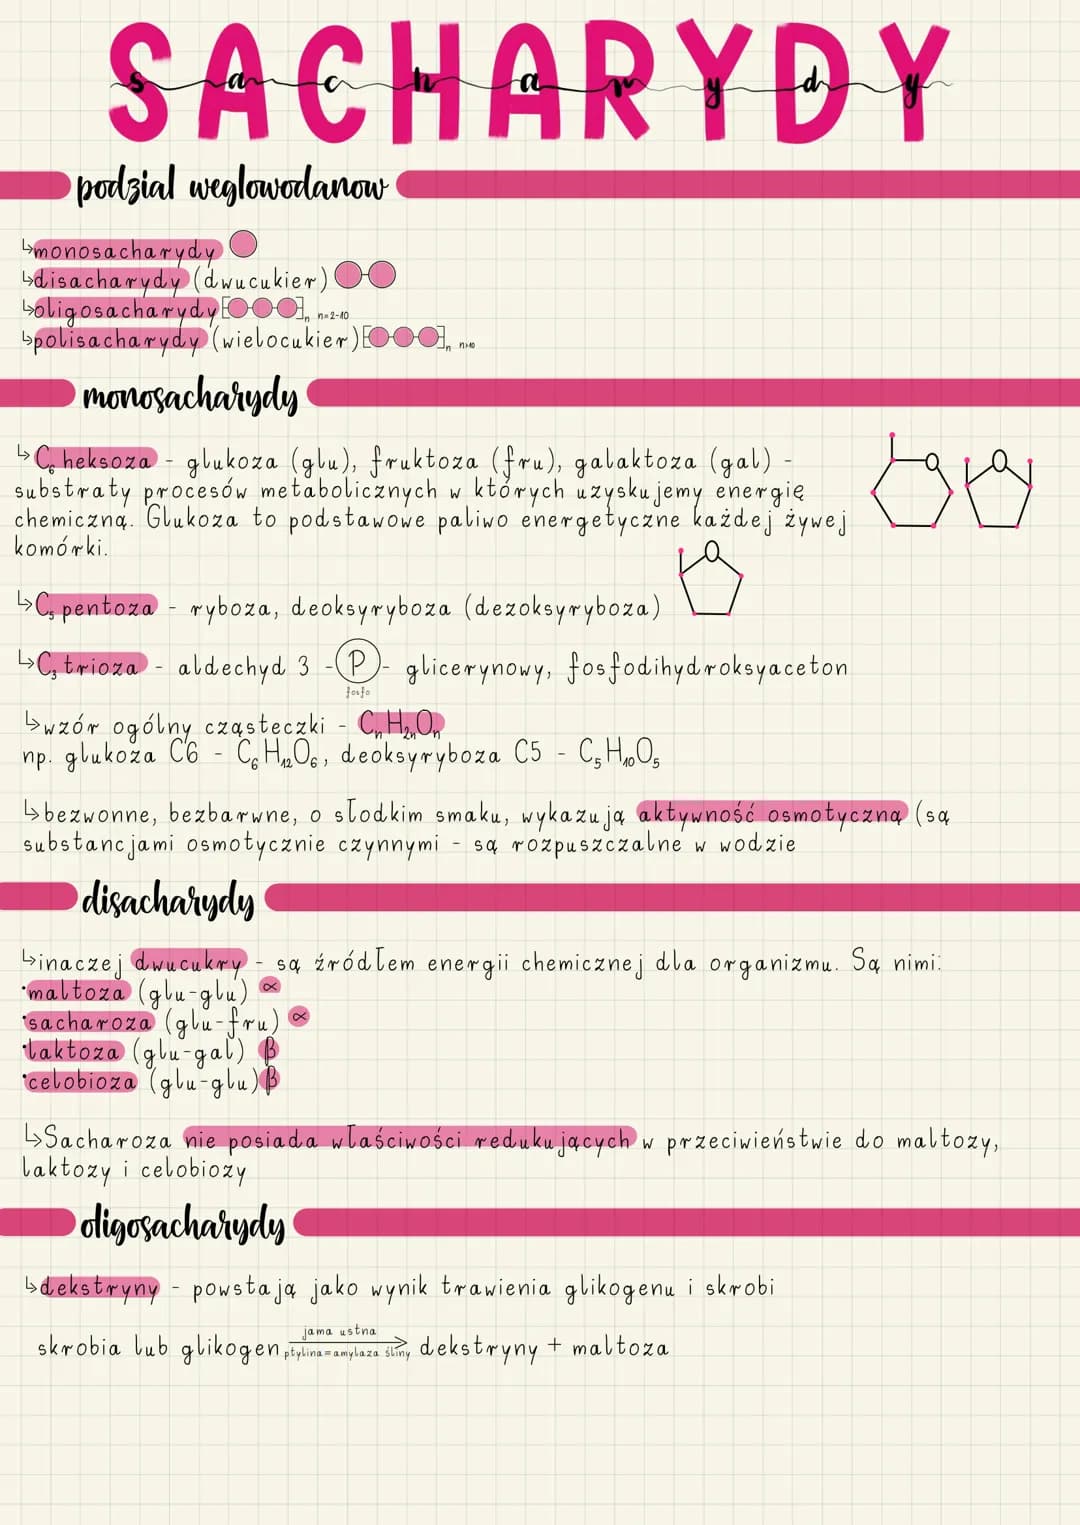 SACHARYDY
sacharydy
podzial weglowodanow
↳monosacharydy
↳disacharydy (dwucukier)
↳oligosacharydy [ ]n n=2-10
↳polisacharydy (wielocukier) [ ]n n>10
monosacharydy
↳C₆ heksoza - glukoza (glu), fruktoza (fru), galaktoza (gal) -
substraty procesów metabolicznych w których uzyskujemy energię
chemiczną. Glukoza to podstawowe paliwo energetyczne każdej żywej
komórki.
↳C₅ pentoza - ryboza, deoksyryboza (dezoksyryboza)
↳C₃ trioza - aldechyd 3 -P- glicerynowy, fosfodihydroksyaceton
fosfo
↳wzór ogólny cząsteczki - CₙH₂ₙOₙ
np. glukoza C6 - C₆H₁₂O₆, deoksyryboza C5 - C₅H₁₀O₅
↳bezwonne, bezbarwne, o słodkim smaku, wykazują aktywność osmotyczną (są
substancjami osmotycznie czynnymi - są rozpuszczalne w wodzie
disacharydy
↳inaczej dwucukry - są źródłem energii chemicznej dla organizmu. Są nimi:
·maltoza (glu-glu) α
·sacharoza (glu-fru) α
·laktoza (glu-gal) β
·celobioza (glu-glu) β
↳Sacharoza nie posiada właściwości redukujących w przeciwieństwie do maltozy,
laktozy i celobiozy
oligosacharydy
↳dekstryny - powstają jako wynik trawienia glikogenu i skrobi
jama ustna
skrobia lub glikogen ptylina=amylaza śliny dekstryny + maltoza